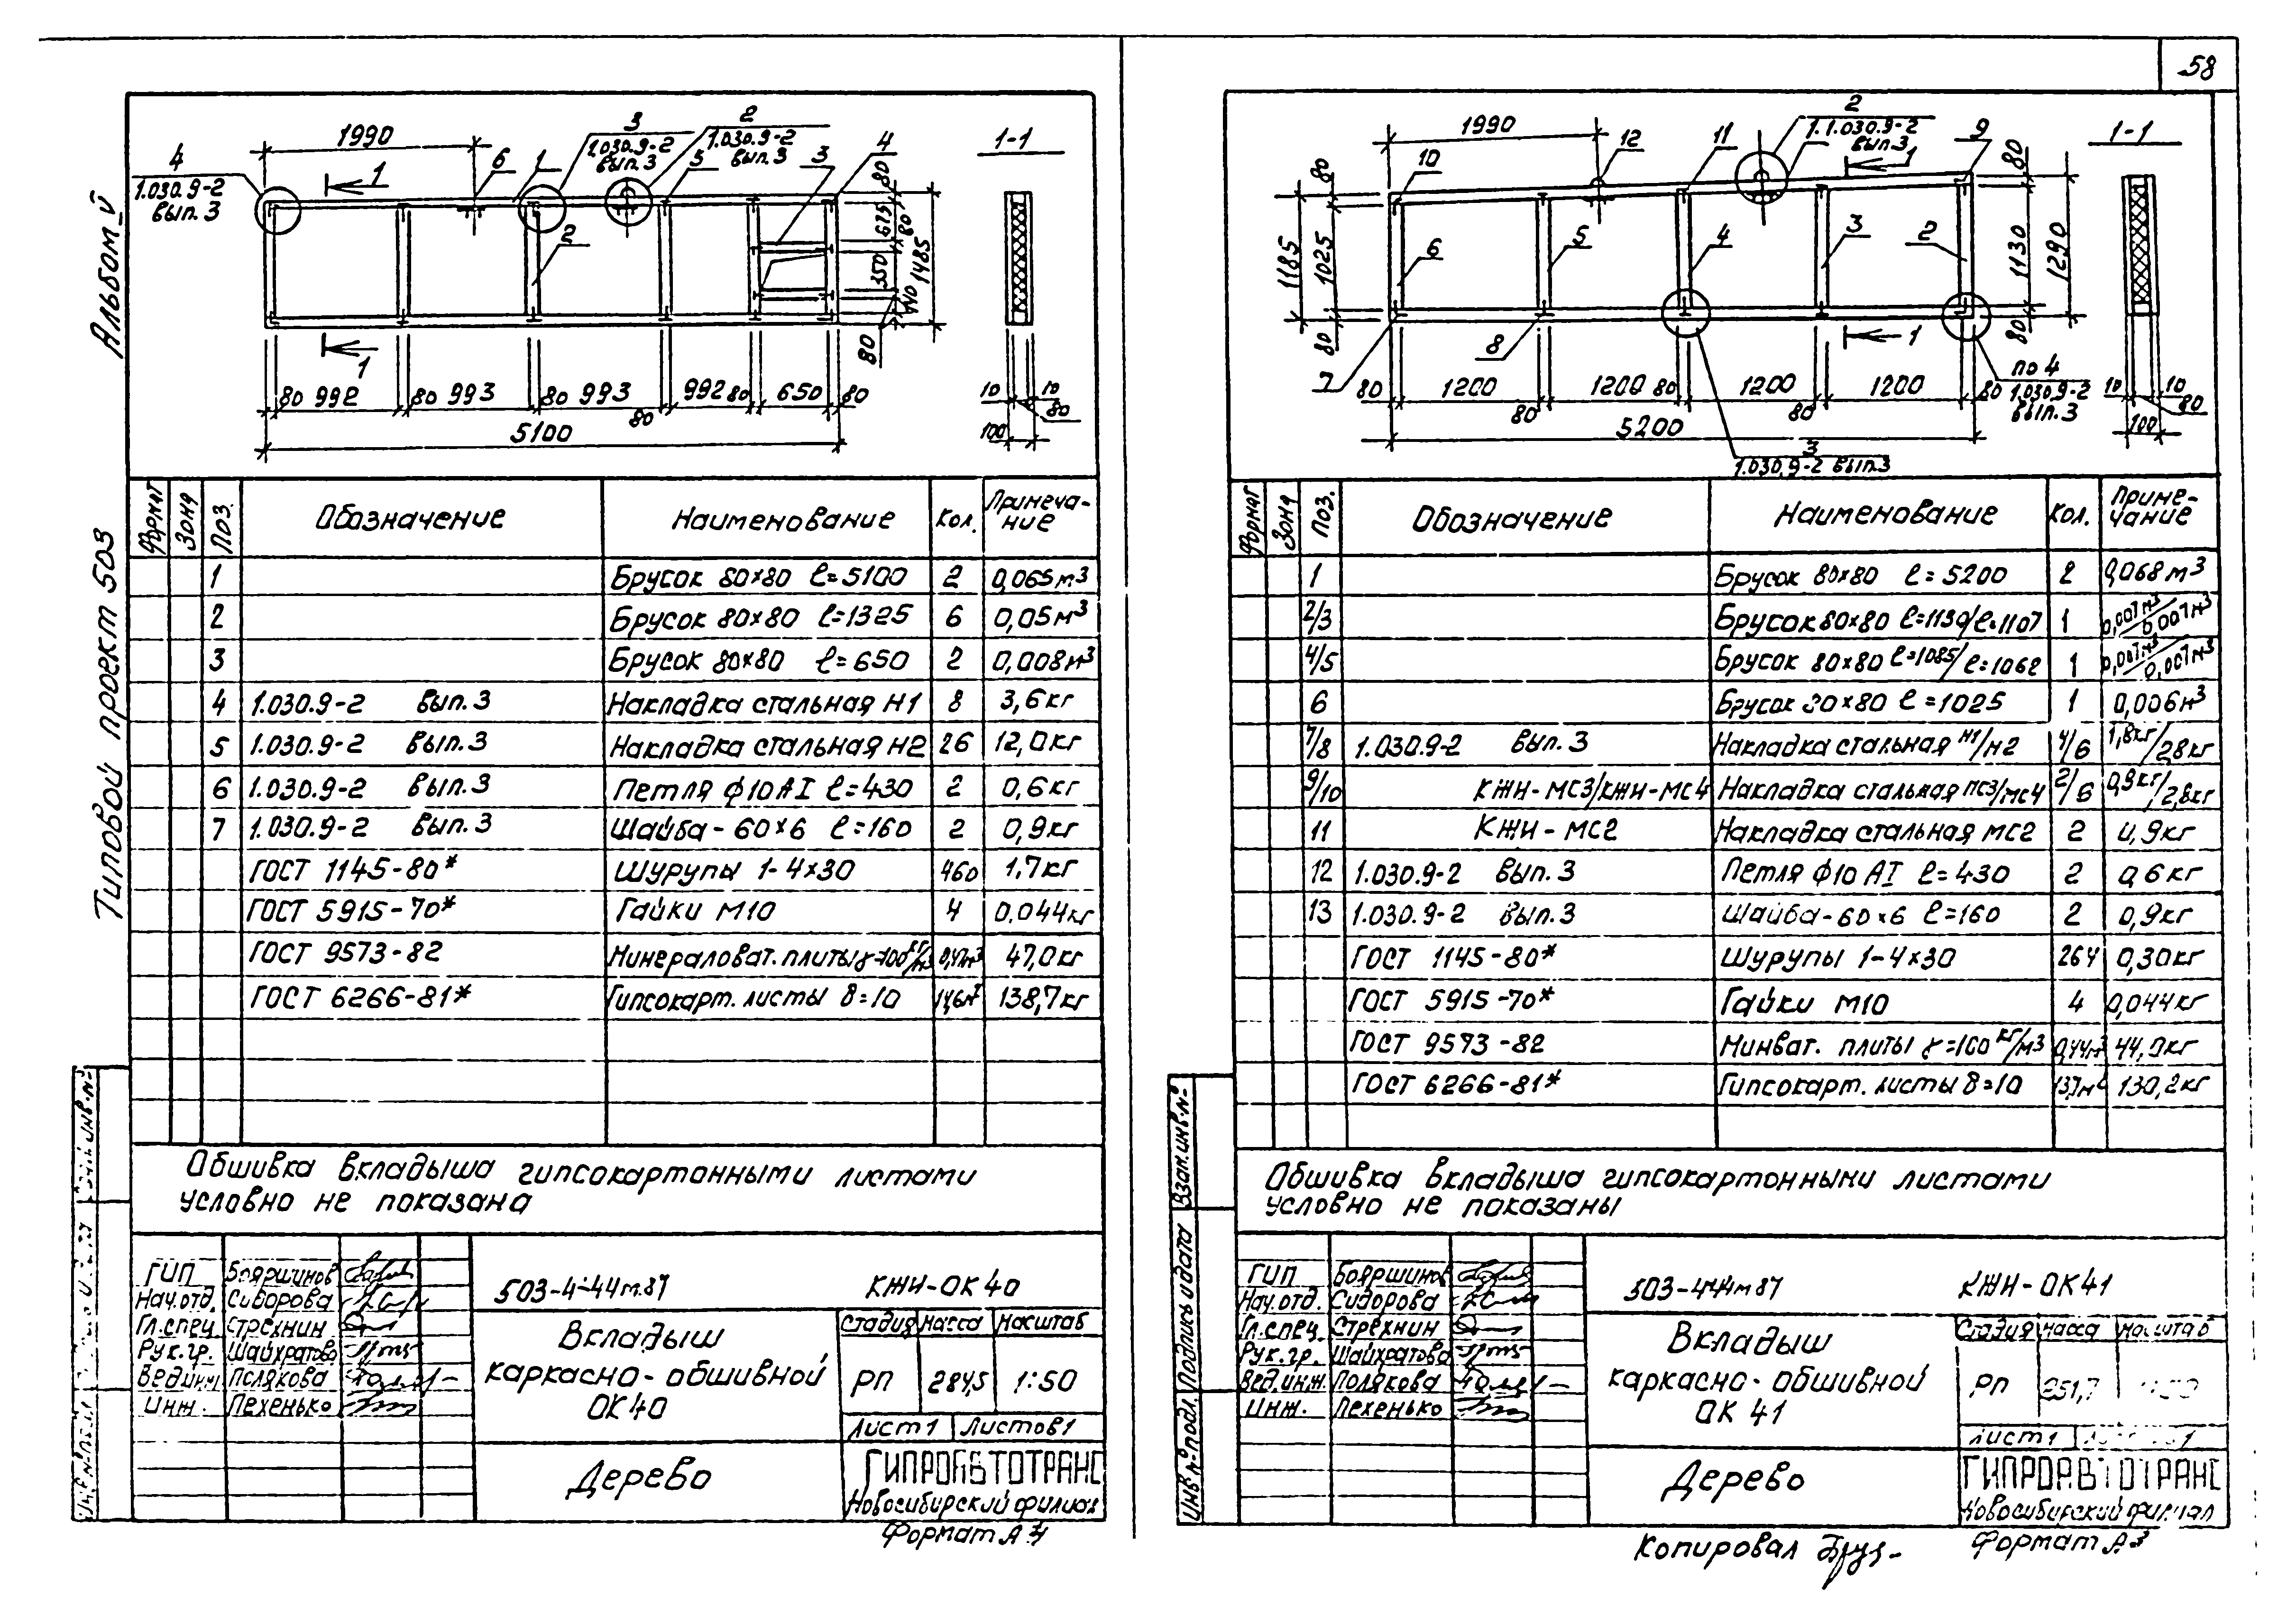 58
Альбом V
Типовой проект 503
1990
4
1.030.9-2
вып.3
1
6
1
3
1.030.9-2
вып.3
2
1.030.9-2
вып.3
5
3
4
1-1
80
675
80
350
140
1485
80
2
1
80 992 80 993 80 993 80 992 80 650 80
5100
10 10
80
100
Формат Зона Поз. Обозначение Наименование Кол. Примеча-
ние
1 Брусок 80×80 ℓ=5100 2 0,065м³
2 Брусок 80×80 ℓ=1325 6 0,05м³
3 Брусок 80×80 ℓ=650 2 0,008м³
4 1.030.9-2 вып.3 Накладка стальная Н1 8 3,6кг
5 1.030.9-2 вып.3 Накладка стальная Н2 26 12,0кг
6 1.030.9-2 вып.3 Петля ф10АI ℓ=430 2 0,6кг
7 1.030.9-2 вып.3 Шайба-60×6 ℓ=160 2 0,9кг
ГОСТ 1145-80* Шурупы 1-4×30 460 1,7кг
ГОСТ 5915-70* Гайки М10 4 0,044кг
ГОСТ 9573-82 Минераловат. плиты γ=100кг/м³ 0,47м³ 47,0кг
ГОСТ 6266-81* Гипсокарт. листы δ=10 14,6м² 138,7кг
Обшивка вкладыша гипсокартонными листами
условно не показана
ГИП Бояршинов
Нач.отд. Сидорова
Гл.спец. Стрехнин
Рук.гр. Шайхратова
Вед.инж. Полякова
Инж. Пехенько
503-4-44м.87 КЖИ-ОК40
Вкладыш
каркасно-обшивной
ОК40
Стадия Масса Масштаб
РП 284,5 1:50
Лист 1 Листов 1
Дерево
ГИПРОАВТОТРАНС
Новосибирский филиал
Формат А4
1990
12
11
2
1.1.030.9-2
вып.3
1
9
1-1
10
80
1185
1025
80
6
5
4
3
2
80
1130
1290
80
7
8
1
по 4
1.030.9-2
вып.3
80 1200 80 1200 80 1200 80 1200 80
5200
3
1.030.9-2 вып.3
10 10
80
100
Формат Зона Поз. Обозначение Наименование Кол. Приме-
чание
1 Брусок 80×80 ℓ=5200 2 0,068м³
2/3 Брусок 80×80 ℓ=1130/ℓ=1107 1 0,007м³/0,007м³
4/5 Брусок 80×80 ℓ=1085/ℓ=1062 1 0,007м³/0,007м³
6 Брусок 80×80 ℓ=1025 1 0,006м³
7/8 1.030.9-2 вып.3 Накладка стальная Н1/Н2 4/6 1,8кг/2,8кг
9/10 КЖИ-МС3/КЖИ-МС4 Накладка стальная МС3/МС4 2/6 0,9кг/2,8кг
11 КЖИ-МС2 Накладка стальная МС2 2 0,9кг
12 1.030.9-2 вып.3 Петля ф10 АI ℓ=430 2 0,6кг
13 1.030.9-2 вып.3 Шайба-60×6 ℓ=160 2 0,9кг
ГОСТ 1145-80* Шурупы 1-4×30 264 0,30кг
ГОСТ 5915-70* Гайки М10 4 0,044кг
ГОСТ 9573-82 Минват. плиты γ=100кг/м³ 0,44м³ 44,0кг
ГОСТ 6266-81* Гипсокарт. листы δ=10 13,7м² 130,2кг
Обшивка вкладыша гипсокартонными листами
условно не показаны
Взам.инв.№
Подпись и дата
Инв.№подл.
ГИП Бояршинов
Нач.отд. Сидорова
Гл.спец. Стрехнин
Рук.гр. Шайхратова
Вед.инж. Полякова
Инж. Пехенько
503-4-44м87 КЖИ-ОК41
Вкладыш
каркасно-обшивной
ОК 41
Стадия Масса Масштаб
РП 251,7
Лист 1
Дерево
ГИПРОАВТОТРАНС
Новосибирский филиал
Копировал Формат А3